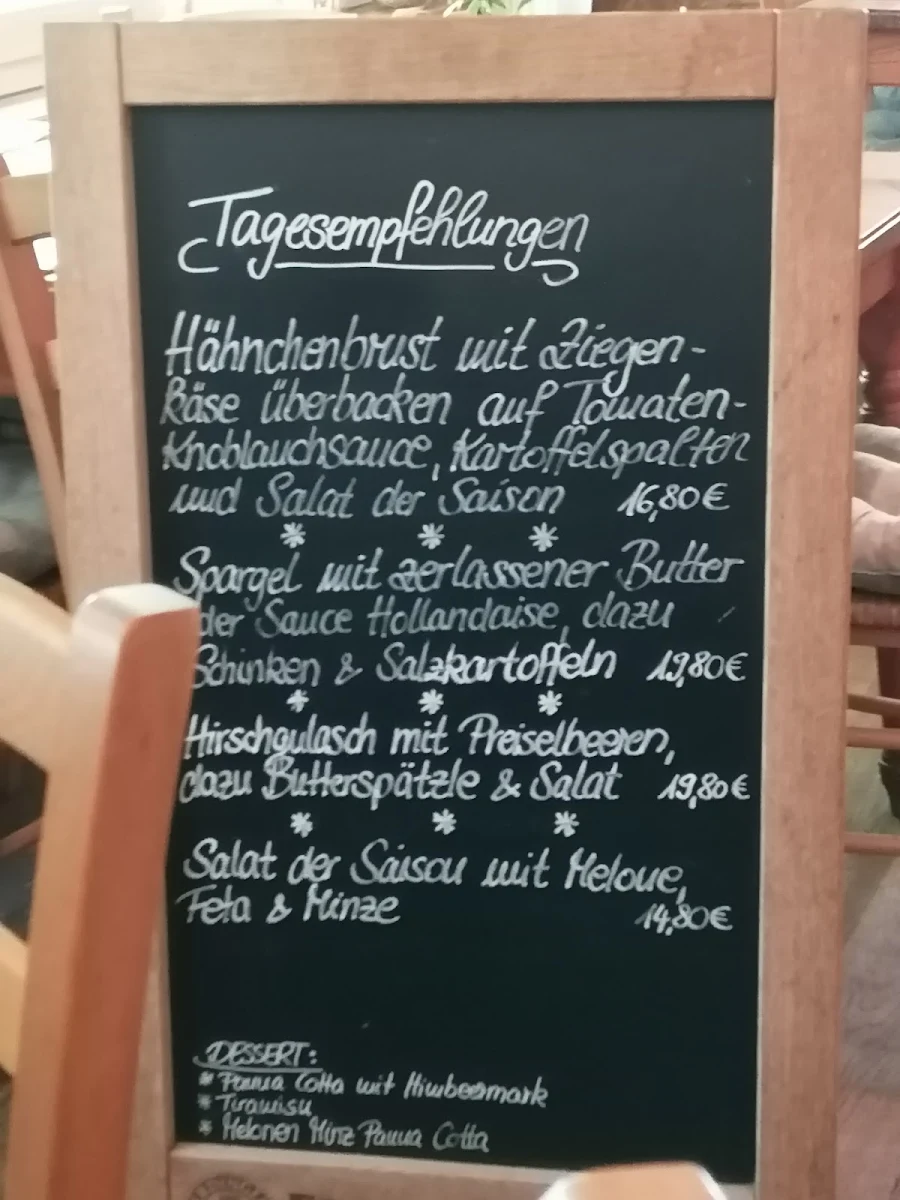 Tagesempfehlungen
Hähnchenbrust mit Ziegen-
käse überbacken auf Tomaten-
Knoblauchsauce, Kartoffelspalten
und Salat der Saison 16,80€
* * *
Spargel mit zerlassener Butter
der Sauce Hollandaise, dazu
Schinken & Salzkartoffeln 19,80€
* * *
Hirschgulasch mit Preiselbeeren,
dazu Butterspätzle & Salat 19,80€
* * *
Salat der Saison mit Melone,
Feta & Minze 14,80€
DESSERT:
* Panna Cotta mit Himbeermark
* Tiramisu
* Melonen Minz Panna Cotta